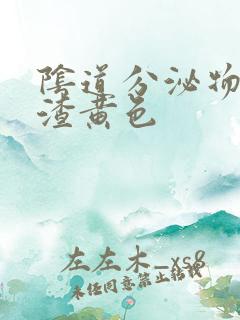 陰道分泌物
渣黄色
左左木_xs8
未经同意禁止转载